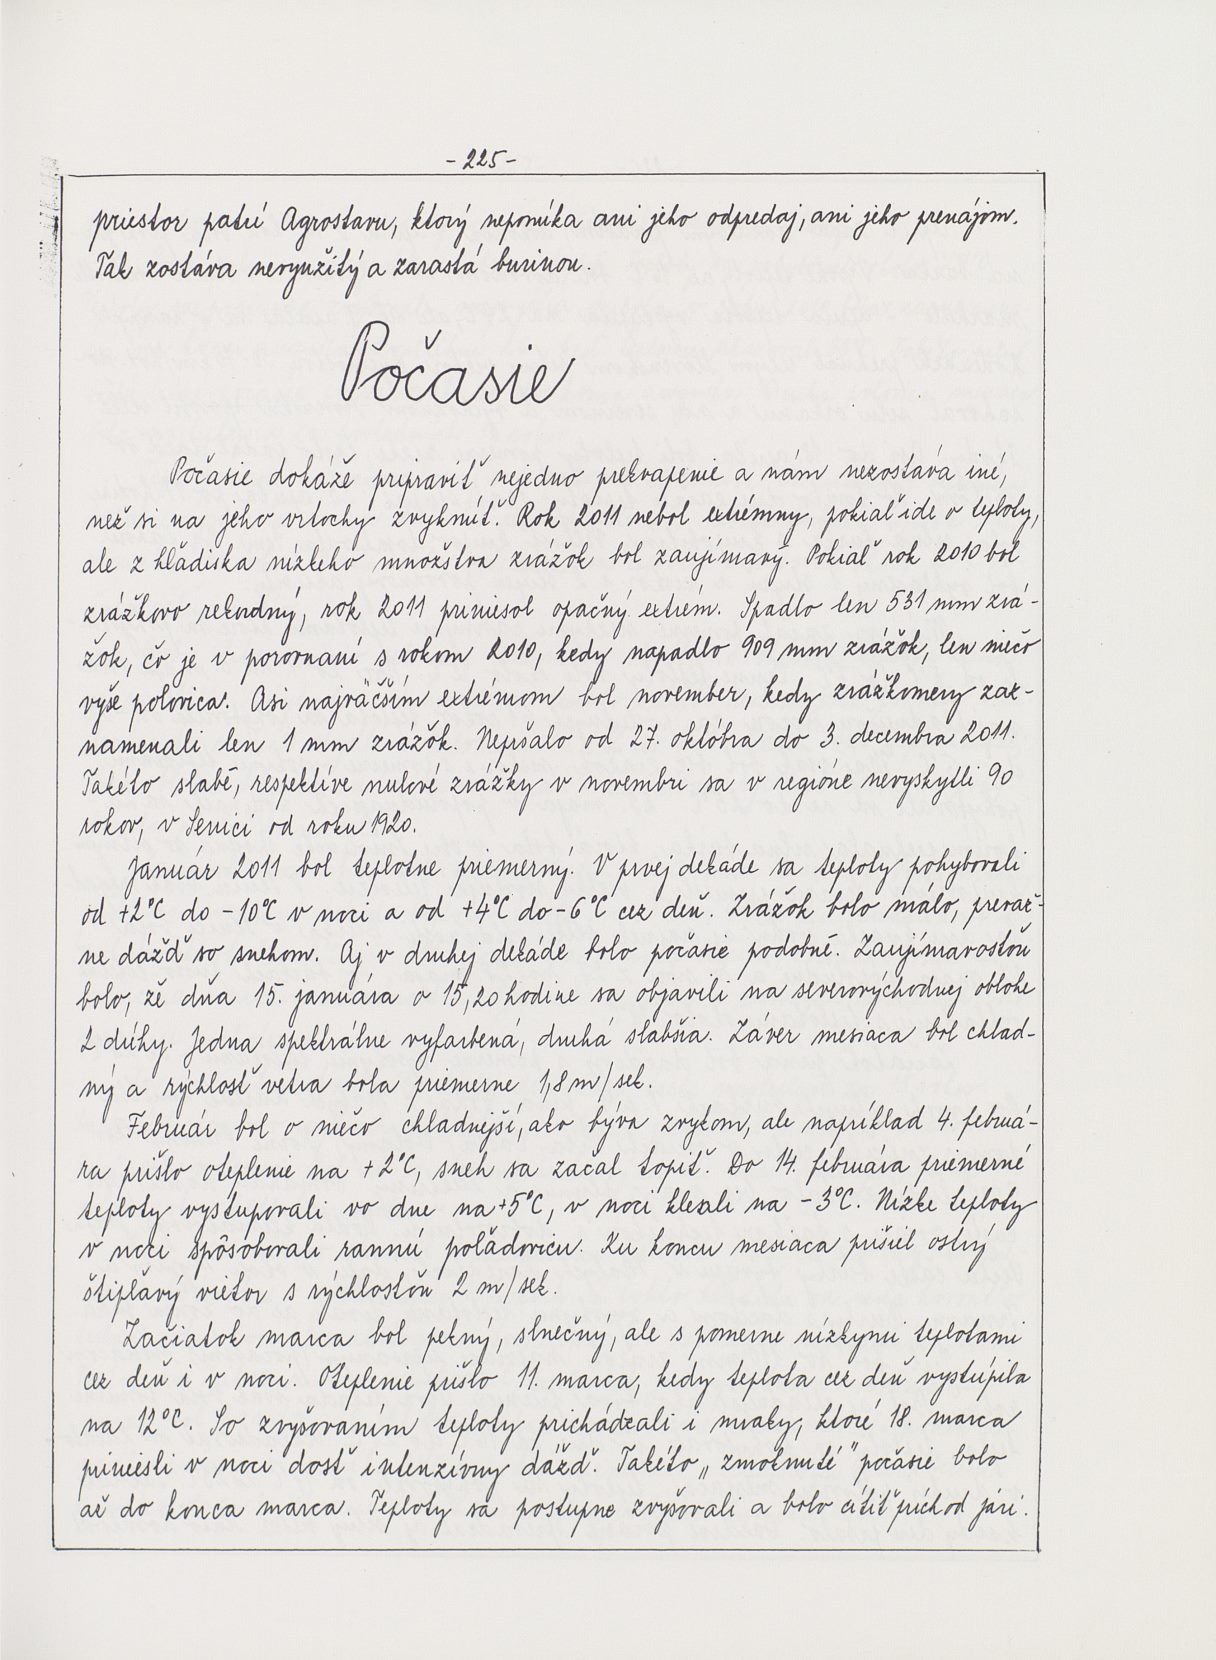 - 225 -
priestor patrí Agrostavu, ktorý neponúka ani jeho odpredaj, ani jeho prenájom.
Tak zostáva nevyužitý a zarastá burinou.
Počasie
Počasie dokáže pripraviť nejedno prekvapenie a nám nezostáva iné,
než si na jeho vrtochy zvyknúť. Rok 2011 nebol extrémny, pokiaľ ide o teploty,
ale z hľadiska nízkeho množstva zrážok bol zaujímavý. Pokiaľ rok 2010 bol
zrážkovo rekordný, rok 2011 priniesol opačný extrém. Spadlo len 531 mm zrá-
žok, čo je v porovnaní s rokom 2010, kedy napadlo 909 mm zrážok, len niečo
vyše polovica. Asi najväčším extrémom bol november, kedy zrážkomery zaz-
namenali len 1 mm zrážok. Nepršalo od 27. októbra do 3. decembra 2011.
Takéto slabé, respektíve nulové zrážky v novembri sa v regióne nevyskytli 90
rokov, v Senici od roku 1920.
Január 2011 bol teplotne priemerný. V prvej dekáde sa teploty pohybovali
od +2°C do -10°C v noci a od +4°C do -6°C cez deň. Zrážok bolo málo, prevaž-
ne dážď so snehom. Aj v druhej dekáde bolo počasie podobné. Zaujímavosťou
bolo, že dňa 15. januára o 15,20 hodine sa objavili na severovýchodnej oblohe
2 dúhy. Jedna spektrálne vyfarbená, druhá slabšia. Záver mesiaca bol chlad-
ný a rýchlosť vetra bola priemerne 1,8 m/sek.
Február bol o niečo chladnejší, ako býva zvykom, ale napríklad 4. februá-
ra prišlo oteplenie na +2°C, sneh sa začal topiť. Do 14. februára priemerné
teploty vystupovali vo dne na +5°C, v noci klesali na -3°C. Nízke teploty
v noci spôsobovali rannú poľadovicu. Ku koncu mesiaca prišiel ostrý
štipľavý vietor s rýchlosťou 2 m/sek.
Začiatok marca bol pekný, slnečný, ale s pomerne nízkymi teplotami
cez deň i v noci. Oteplenie prišlo 11. marca, kedy teplota cez deň vystúpila
na 12°C. So zvyšovaním teploty prichádzali i mraky, ktoré 18. marca
priniesli v noci dosť intenzívny dážď. Takéto „zmoknuté" počasie bolo
až do konca marca. Teploty sa postupne zvyšovali a bolo cítiť príchod jari.